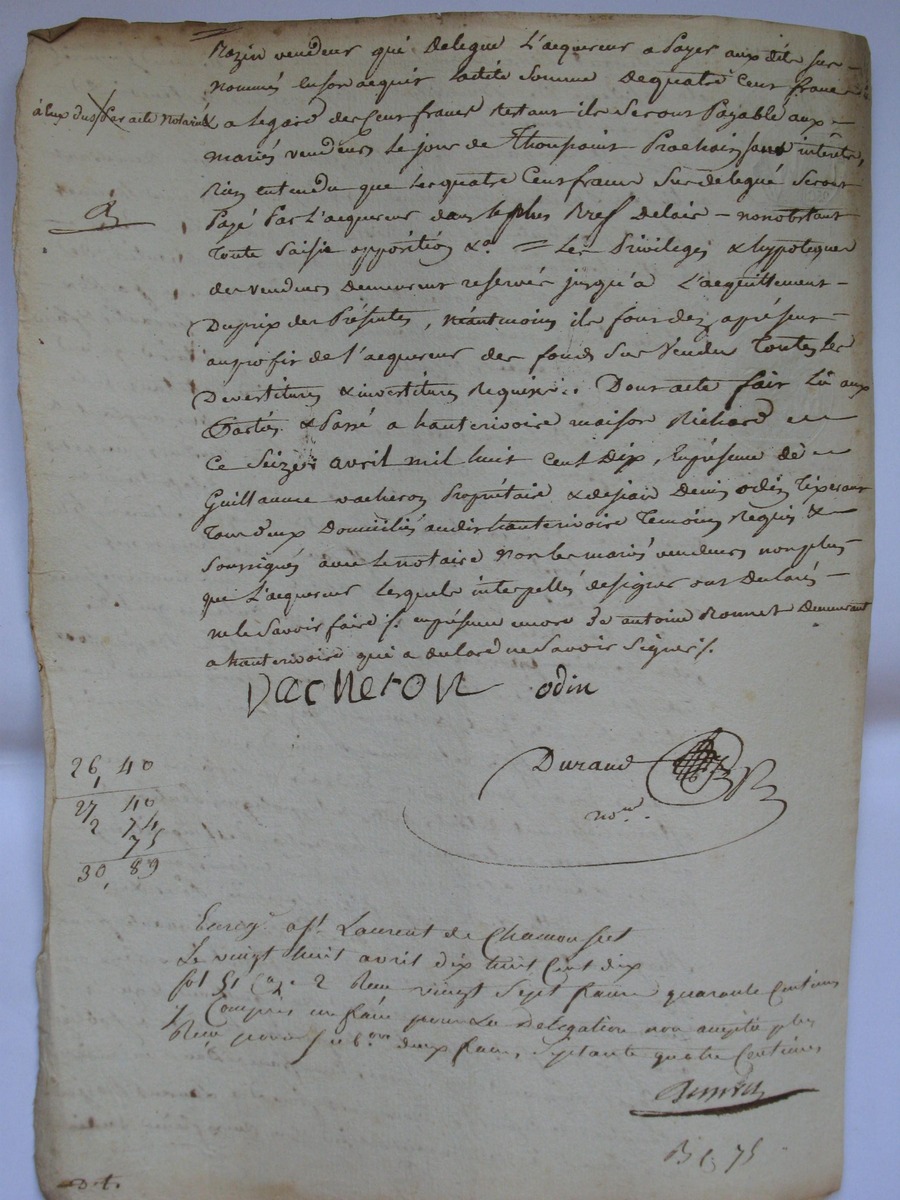 Razin vendeur qui delegue L'acquereur a Payer aux dits sur-
nommés en son acquit la dite Somme de quatre Cent francs
à eux dus par acte Notarié
& a legard des Cent francs Restant ils Seront Payable aux
mariés vendeurs Le jour de Thoussaint Prochain sans interets,
Bien entendu que les quatre Cent francs Sus delegué Seront
Payé Par L'acquereur dans le plus Bref Delais - nonobstant
toute Saisie opposition &a. = Les Privileges & hypoteques
des vendeurs demeurent reservés jusqu'a L'acquittement -
Du prix des Présentes, Néantmoins ils font dez a présent -
au profit de l'acquereur des fonds Sus Vendu Toutes les
Devestitures & investitures Requises. Dont acte fait Lu aux
Parties & Passé a hauterivoire maison Richard
Ce Seize avril mil huit Cent Dix, En présence de
Guillaume vacheron Propriétaire & de jean Denis odin Tixerant
Tous deux Domiciliés au dit hauterivoire Temoins Requis &
Soussignés avec le notaire Non les mariés vendeurs non plus
que L'acquereur Lesquels interpellés de signer ont Declarés -
ne le Savoir faire /. en présence encore de antoine Ronnet Demeurant
a hauterivoire qui a declaré ne Savoir Signer /.
vacheron odin
Durand
nore.
26, 40
27 40
2 74
75
30, 89
Enregé. a St. Laurent de Chamousset
Le vingt huit avril dix huit Cent dix
fol 51 Ce. 2 Reçu vingt Sept francs quarante Centimes
y Compris un franc pour La delegation non acceptée plus
Reçu pour deux francs Septante quatre Centimes
75
D.t.